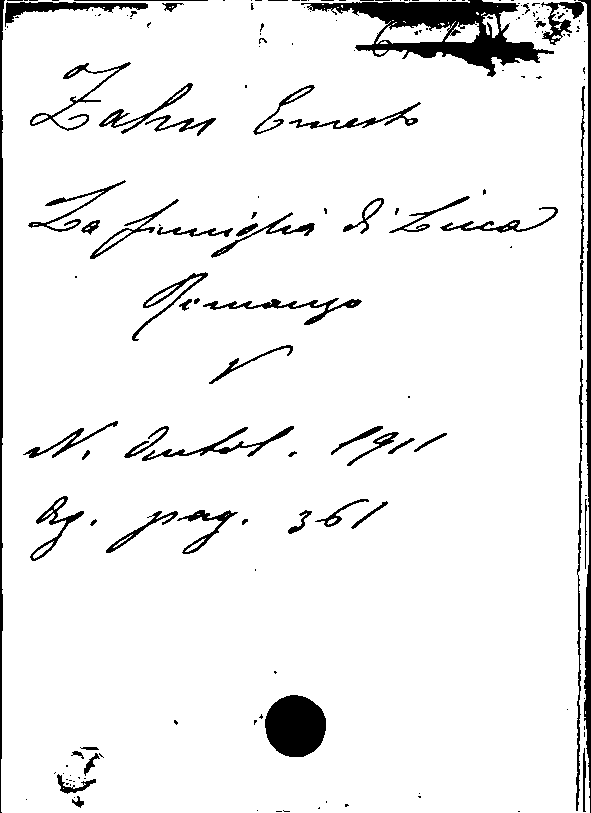 Zahn Ernesto
La famiglia di Luca
Romanzo
V
N. Antol. 1911
Ag. pag. 361